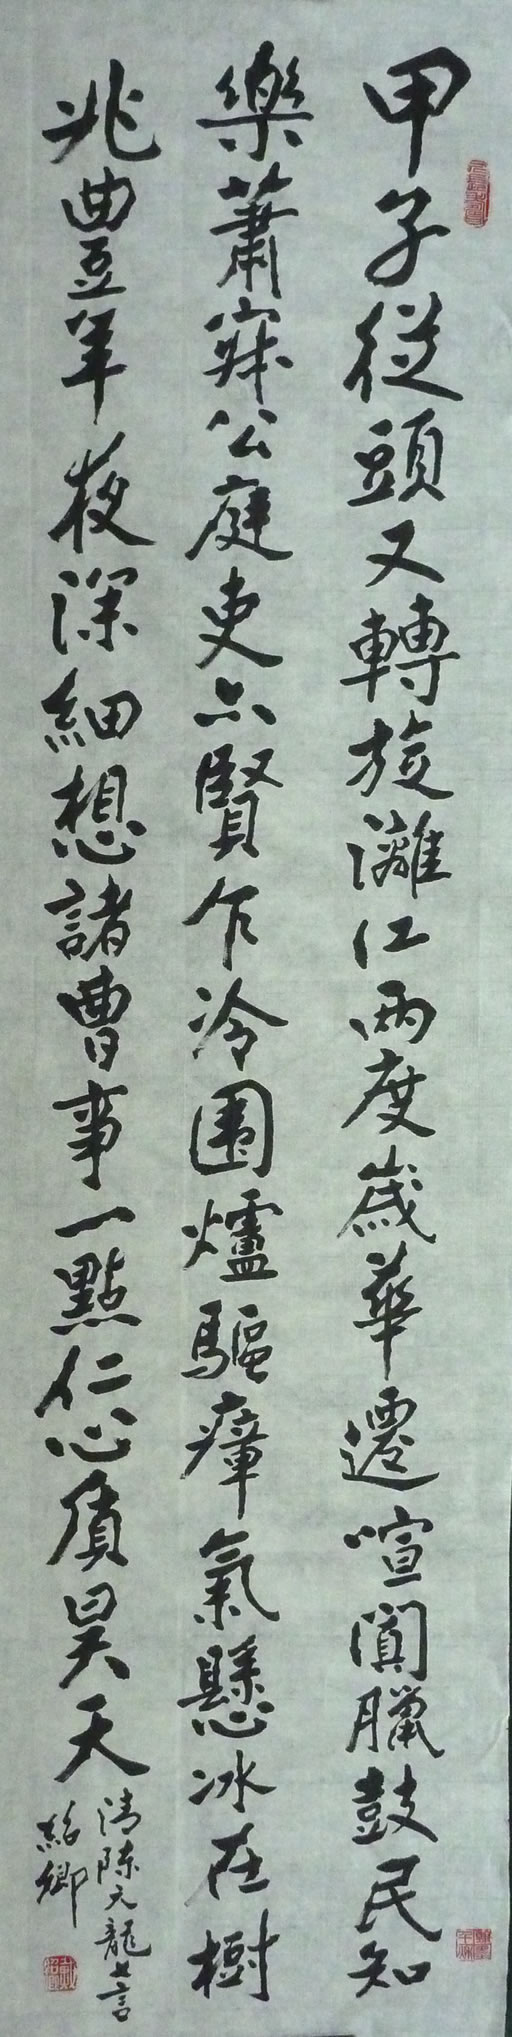 甲子從頭又轉旋灕江兩度歲華遷喧闐臘鼓民知
樂蕭寂公庭吏亦賢乍冷圍爐驅瘴氣懸冰在樹
兆豐年夜深細想諸曹事一點仁心質昊天
清陳元龍七言
紹卿